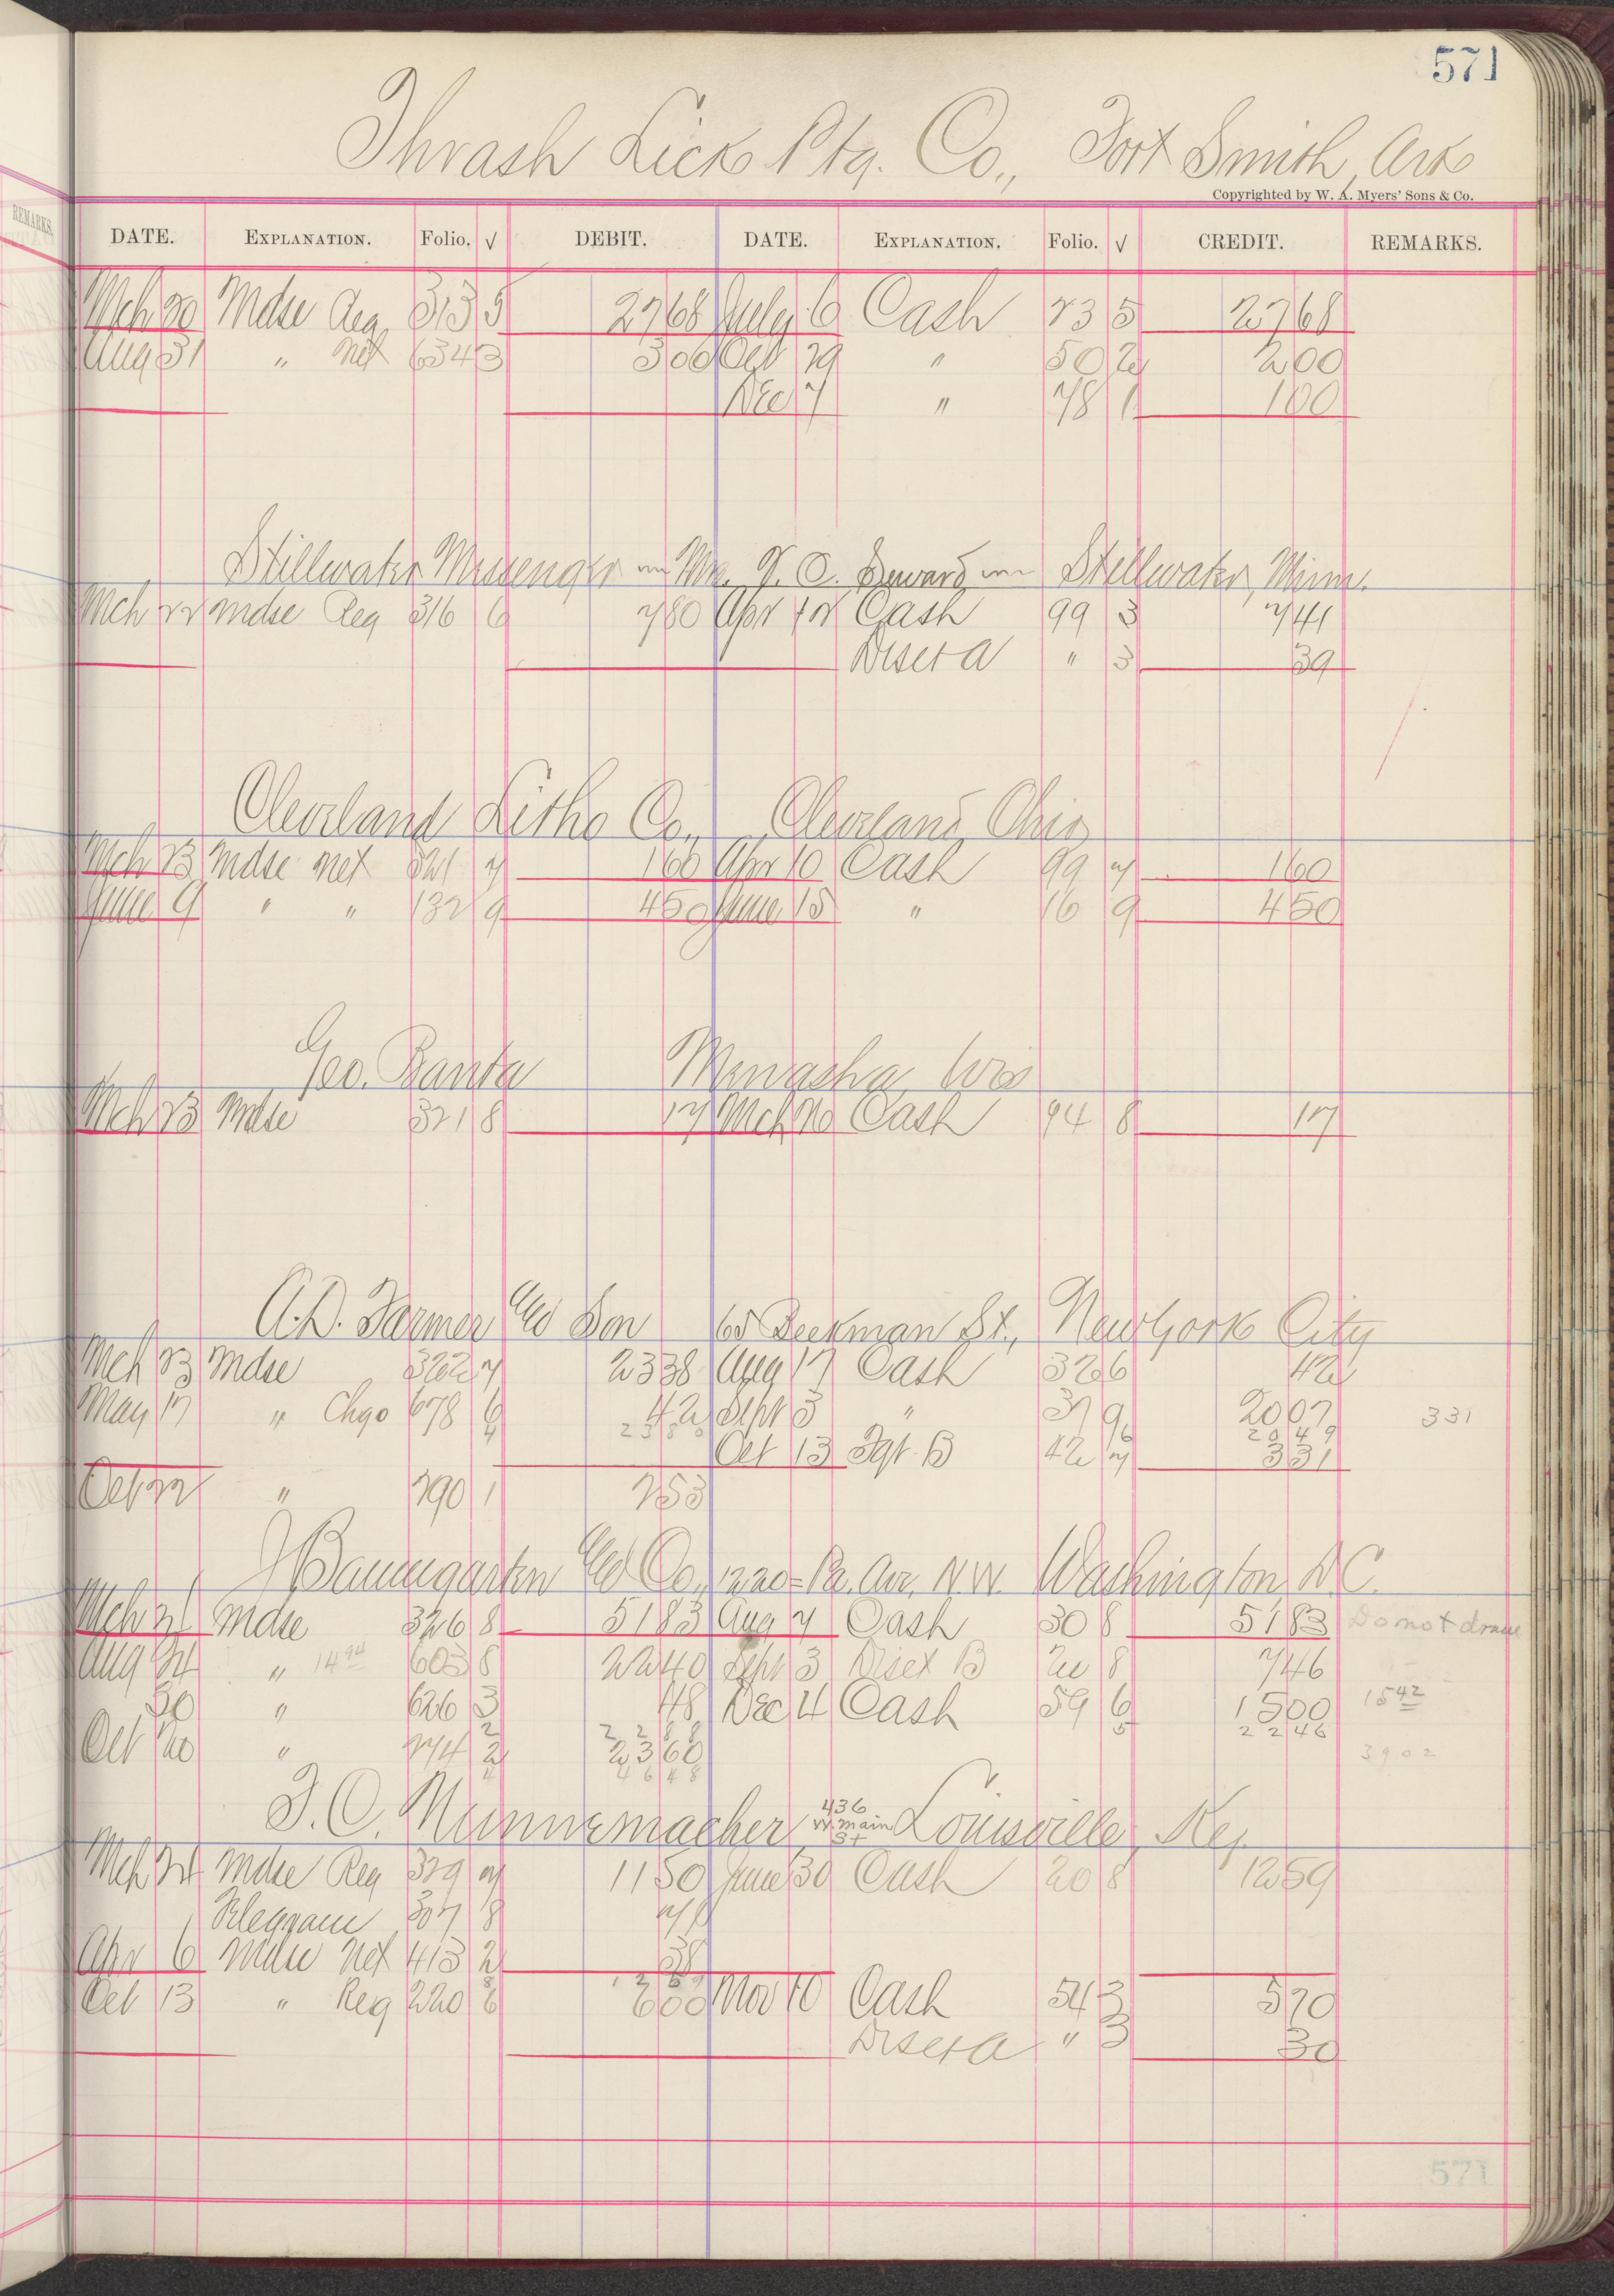 571
Thrash Lick Ptg. Co., Fort Smith, Ark
Copyrighted by W. A. Myers' Sons & Co.
REMARKS.
DATE. EXPLANATION. Folio. √ DEBIT. DATE. EXPLANATION. Folio. √ CREDIT. REMARKS.
Mch 20 Mdse Reg 313 5 2768 July 6 Cash 23 5 2768
Aug 31 " Net 634 3 300 Oct 29 " 50 2 200
Dec 7 " 78 1 100
Stillwater Messenger Stillwater, Minn.
Mch 22 Mdse Reg 316 6 780 Apr 12 Cash 99 3 741
Disct A " 3 39
Cleveland Litho Co., Cleveland, Ohio
Mch 23 Mdse Net 321 7 160 Apr 10 Cash 99 7 160
June 9 " " 132 9 450 June 15 " 16 9 450
Geo. Banta Menasha, Wis
Mch 23 Mdse 321 8 17 Mch 26 Cash 94 8 17
A.D. Farmer & Son 65 Beekman St., New York City
Mch 23 Mdse 322 7 2338 Aug 17 Cash 32 6 42
May 17 " Chgo 678 6 42 Sept 3 " 37 9 2007 331
4 2380 6 2049
Oct 13 Fgt. B 42 7 331
Oct 22 " 290 1 253
J Baumgarten & Co., 1220= Pa. Ave, N.W. Washington, D.C.
Mch 24 Mdse 326 8 5183 Aug 7 Cash 30 8 5183 Do not draw
Aug 24 " 14 94 603 8 2240 Sept 3 Disct B 20 8 746
30 " 626 3 48 Dec 4 Cash 59 6 1500 15 42
2 2288 5 2246
Oct 20 " 274 2 2360 3902
4 4648
F. C. Nunnemacher, 436 W. Main St Louisville, Ky.
Mch 24 Mdse Reg 329 7 1150 June 30 Cash 20 8 1259
Telegram 307 8 71
Apr 6 Mdse Net 413 2 38
8 1259
Oct 13 " Reg 220 6 600 Nov 10 Cash 54 3 570
Disct A " 3 30
571